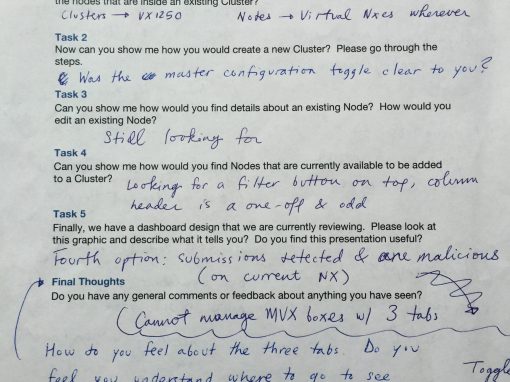 the nodes that are inside an existing Cluster?
Clusters → VX1250 Nodes → Virtual Nxes wherever
Task 2
Now can you show me how you would create a new Cluster? Please go through the
steps.
Was the master configuration toggle clear to you?
Task 3
Can you show me how would you find details about an existing Node? How would you
edit an existing Node?
Still looking for
Task 4
Can you show me how would you find Nodes that are currently available to be added
to a Cluster? Looking for a filter button on top, column
header is a one-off & odd
Task 5
Finally, we have a dashboard design that we are currently reviewing. Please look at
this graphic and describe what it tells you? Do you find this presentation useful?
Fourth option: submissions detected & are malicious
(on current NX)
Final Thoughts
Do you have any general comments or feedback about anything you have seen?
(Cannot manage MVX boxes w/ 3 tabs
How do you feel about the three tabs. Do you
feel you understand where to go to see
Toggle